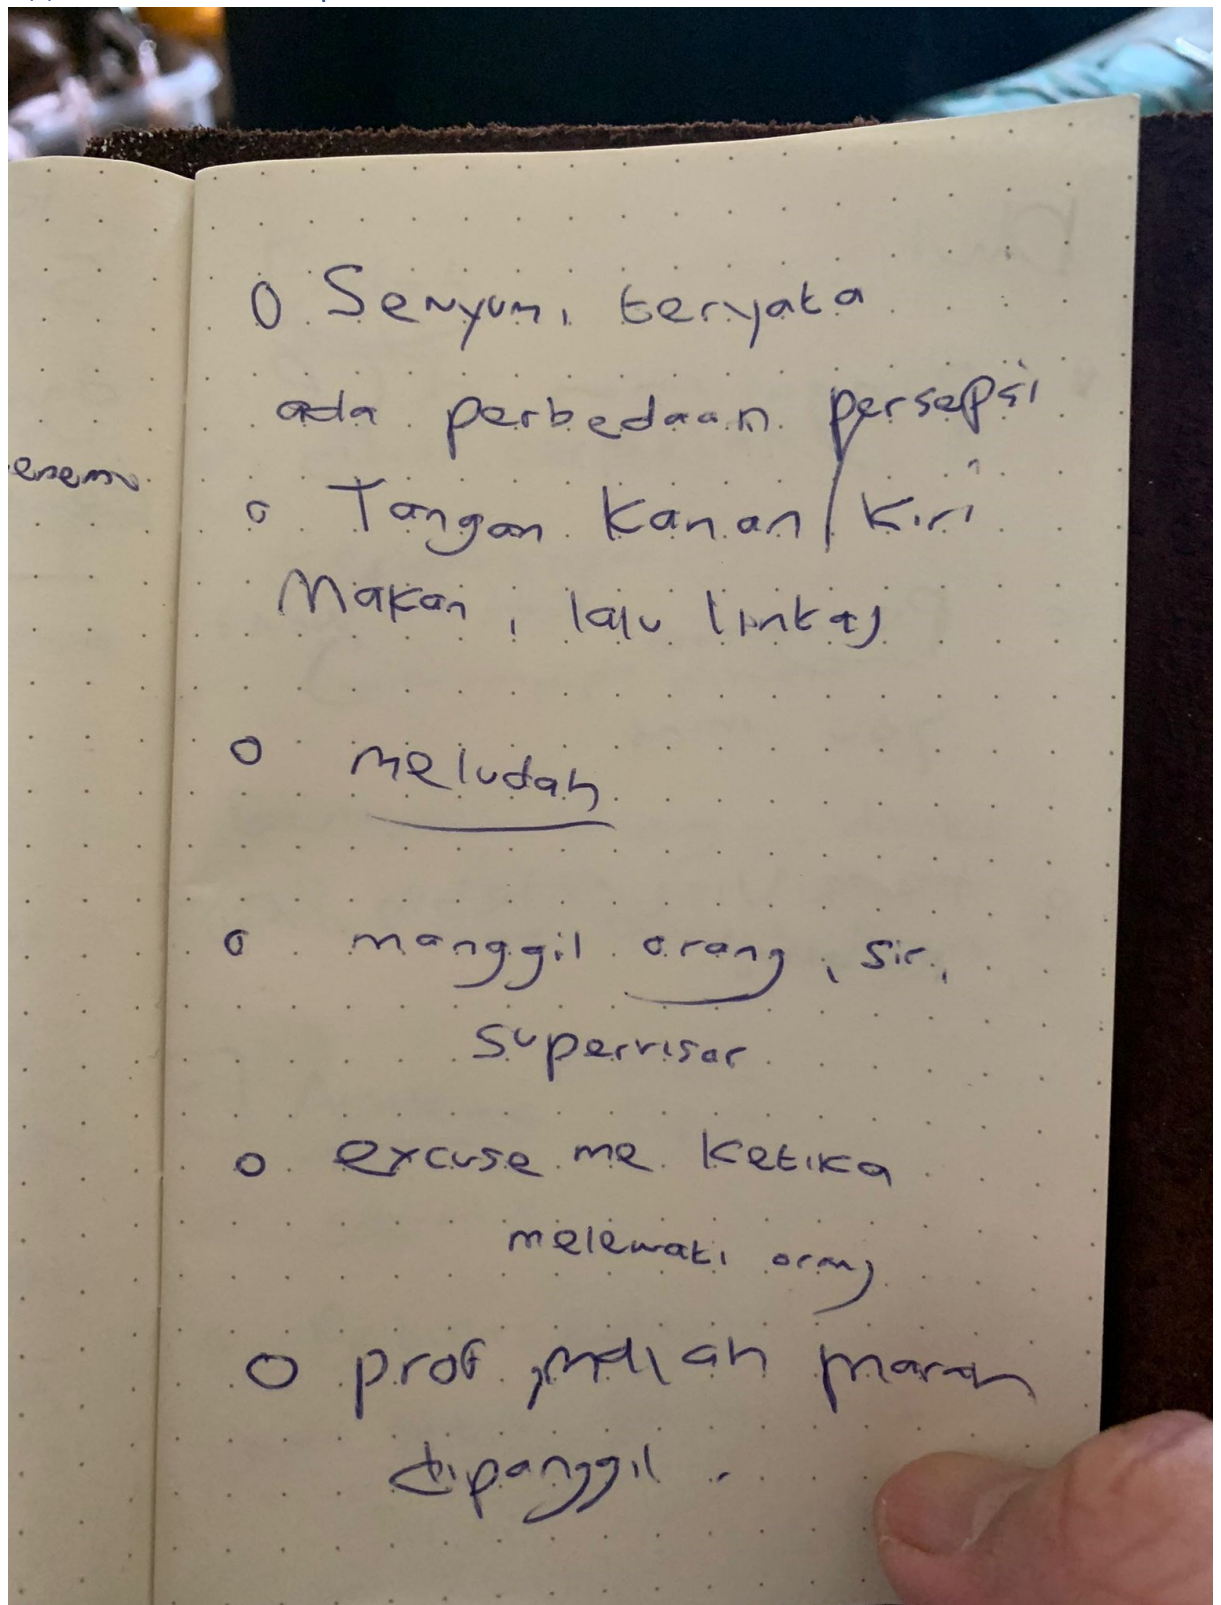 Senyum, teryata
ada perbedaan persepsi
Tangan Kanan / Kiri
Makan, lalu lintas
meludah
manggil orang, sir,
supervisor
excuse me ketika
melewati orang
prof marah
dipanggil.